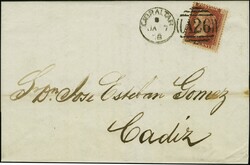 GIBRALTAR
B
JA 7
A26
Sr. Dn. Jose Esteban Gomez
Cadiz